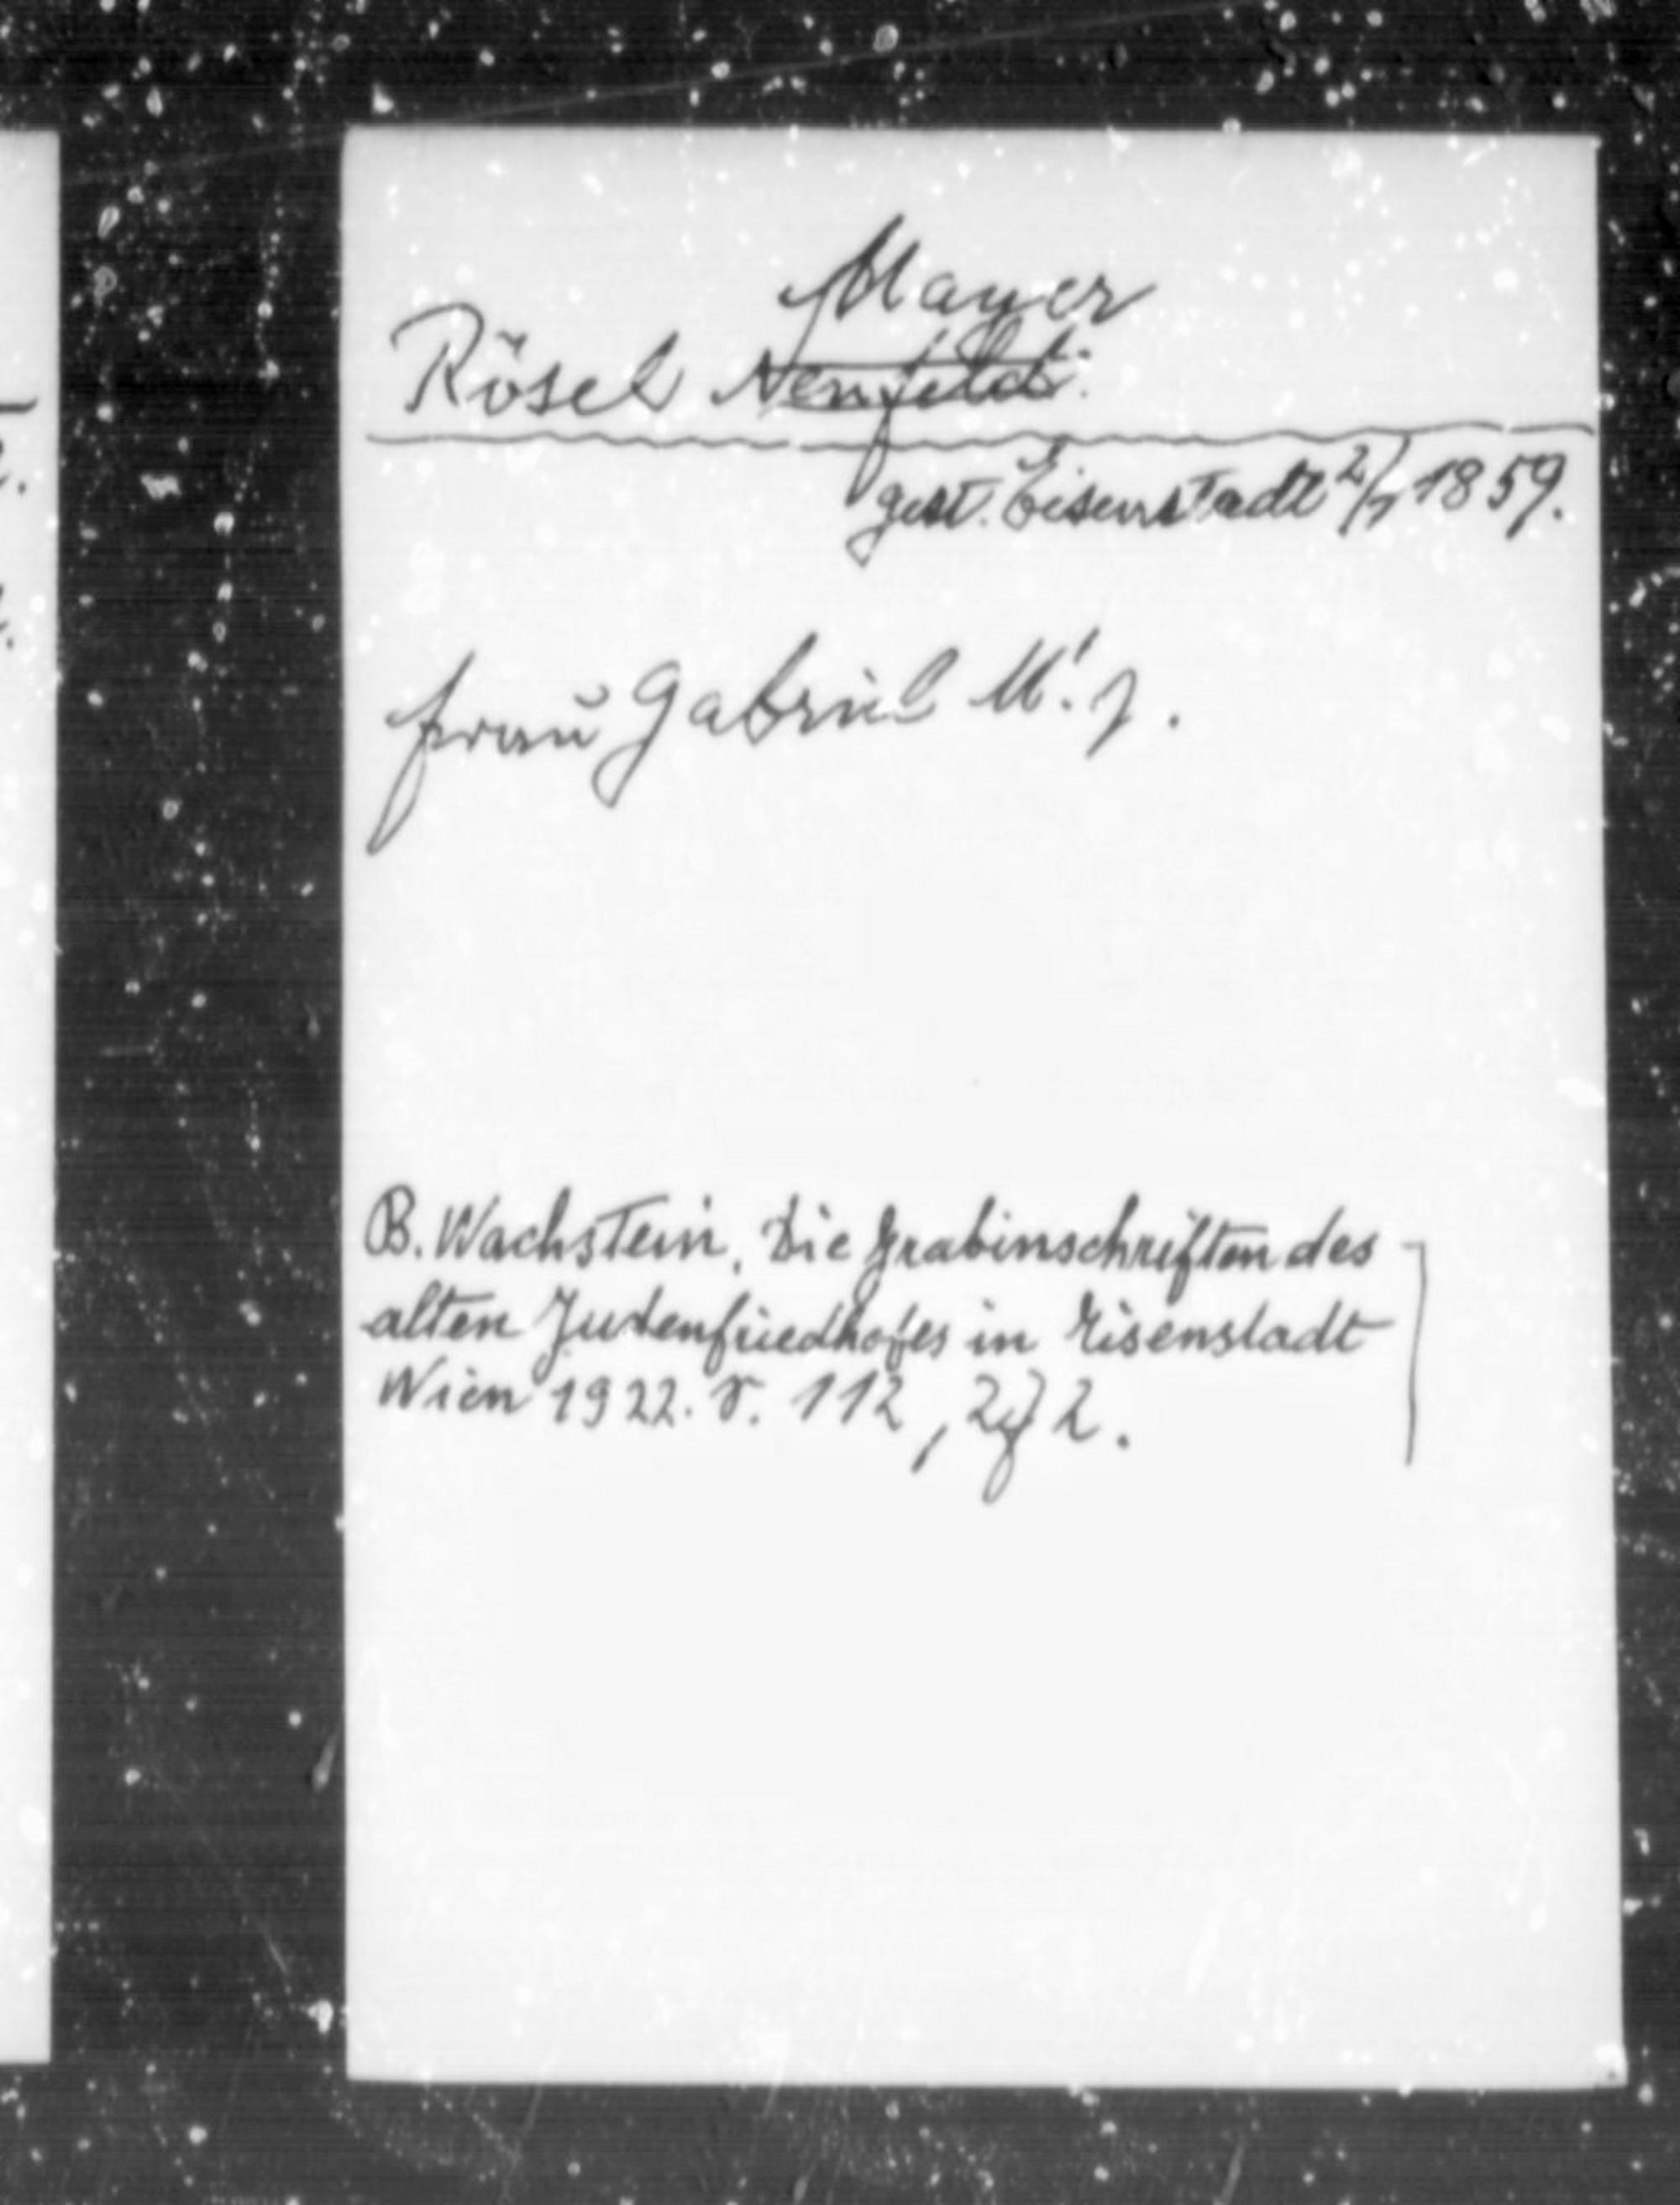 Mayer
Rösel Neufeld.
gest. Eisenstadt 2/7 1859.
Frau Gabriel M's.
B. Wachstein, Die Grabinschriften des
alten Judenfriedhofes in Eisenstadt
Wien 1922. S. 112, 2.